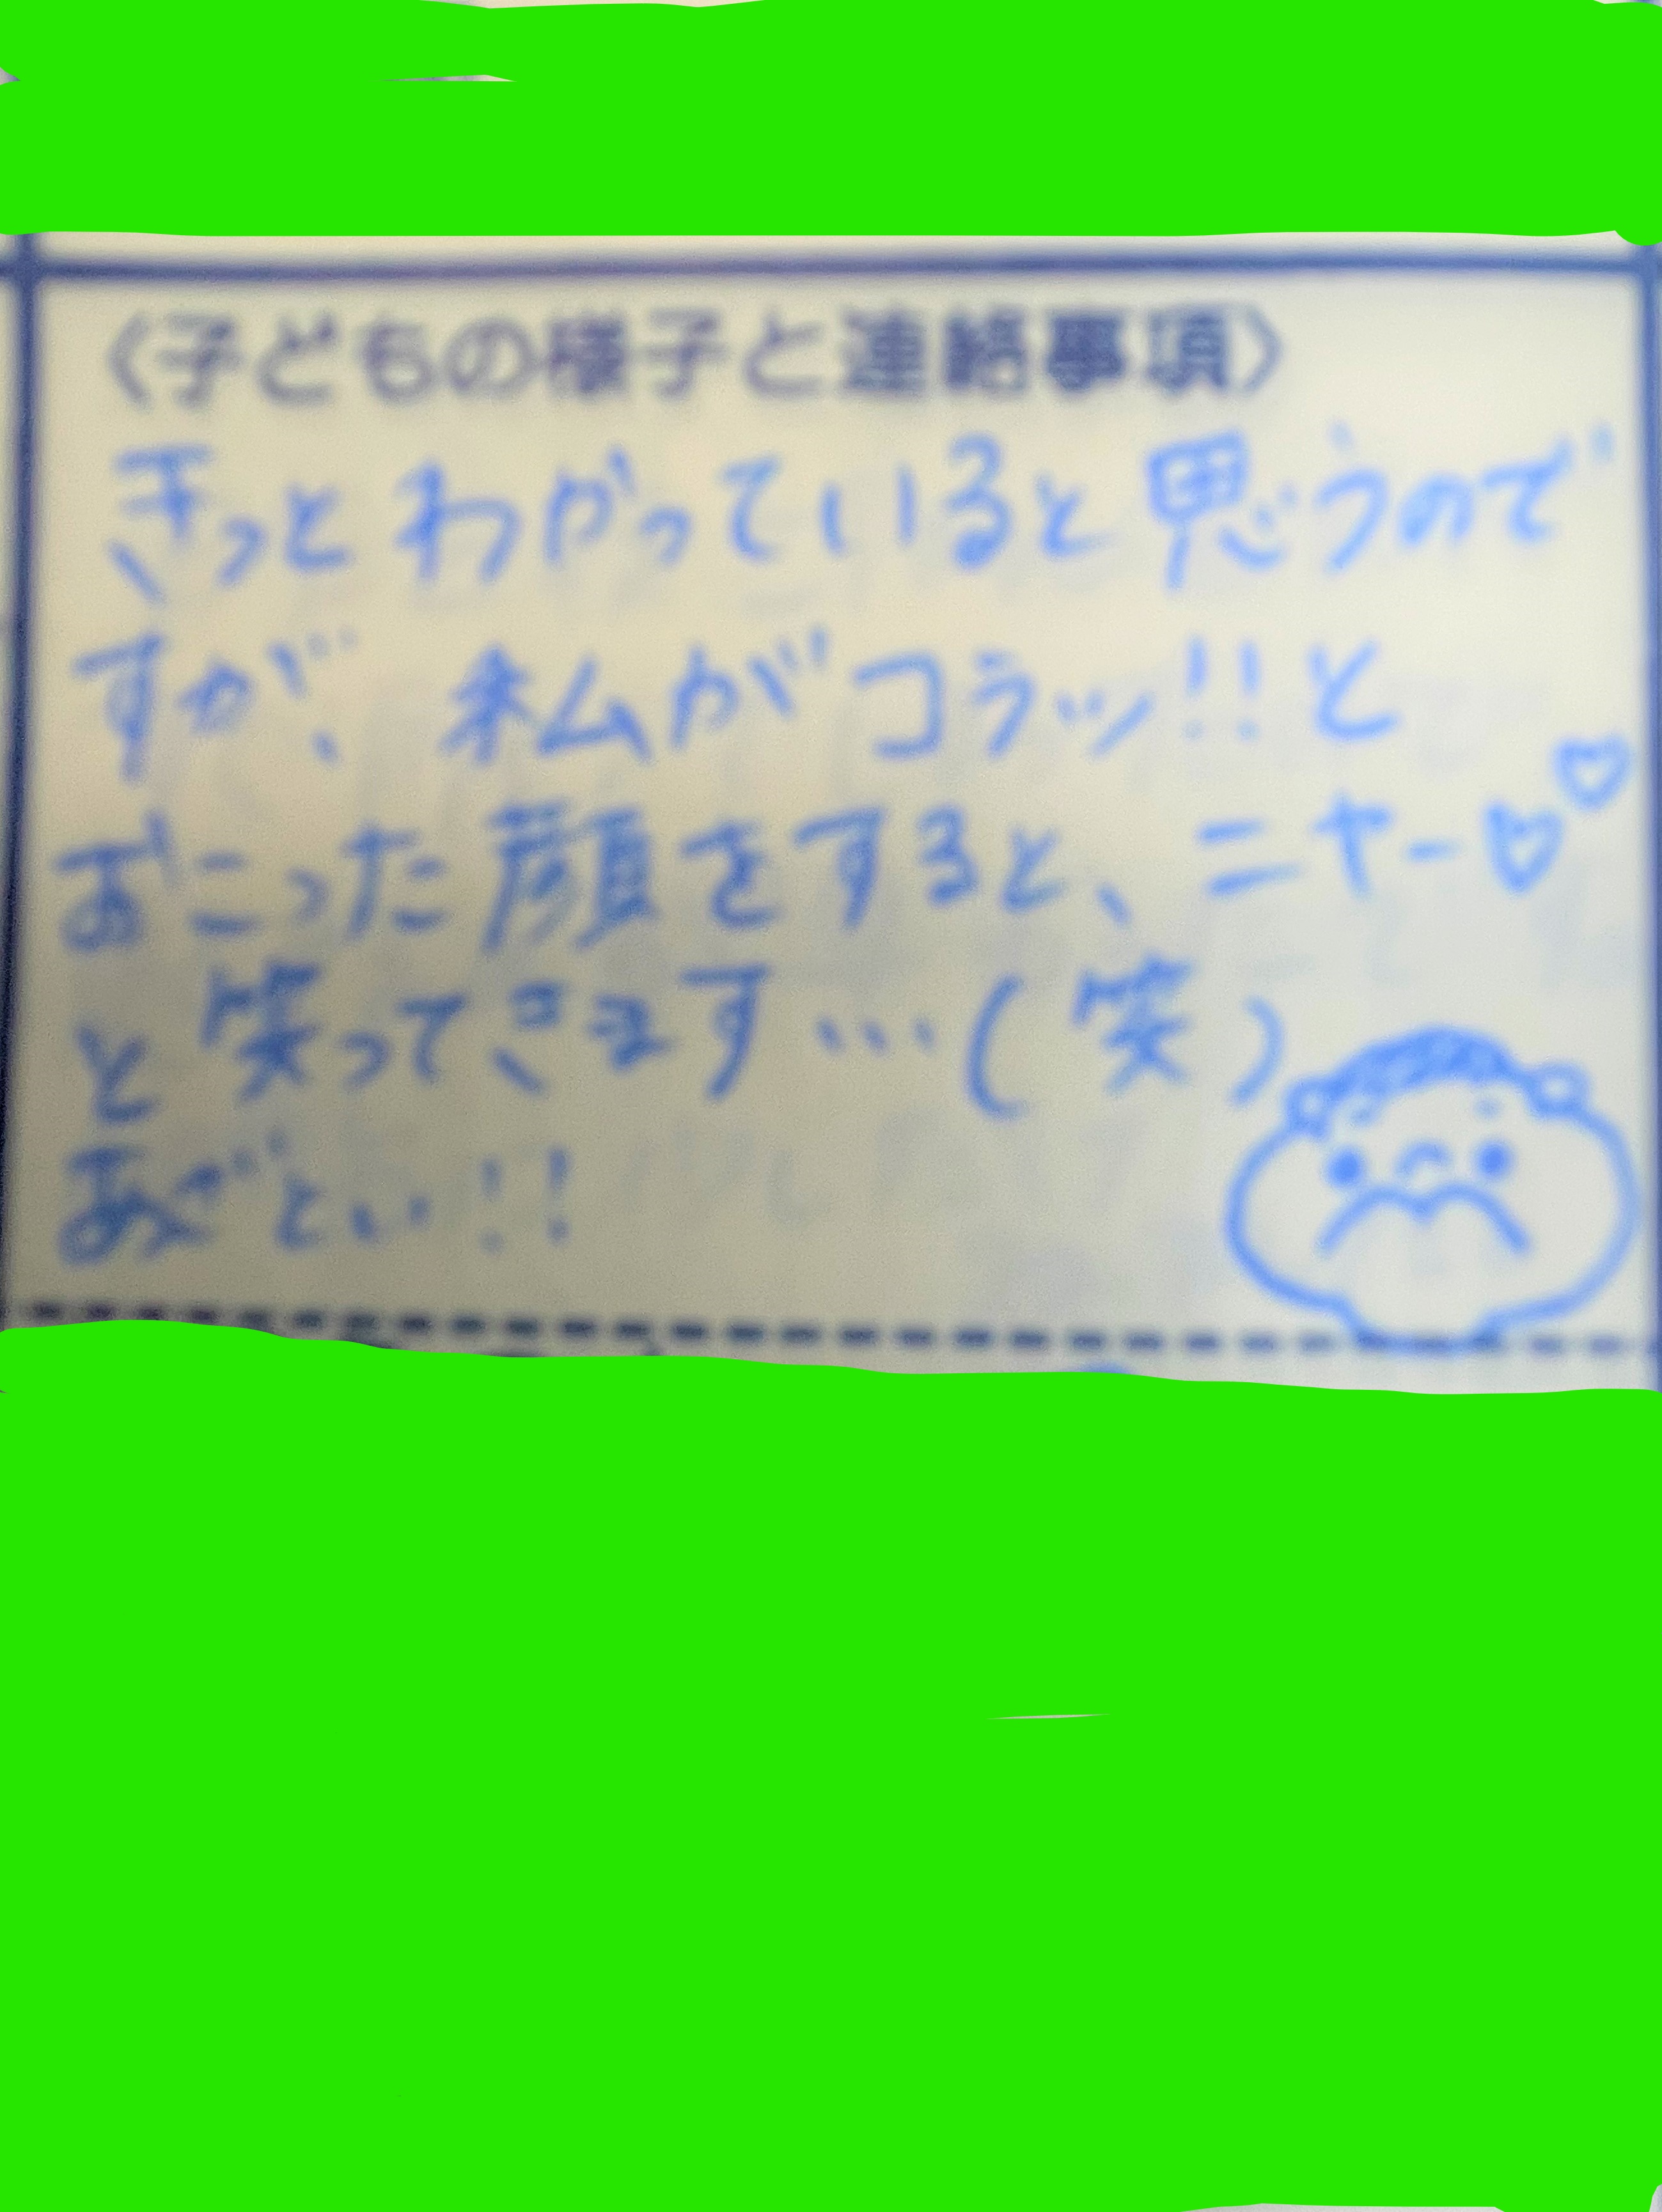 〈子どもの様子と連絡事項〉
きっとわかっていると思うので
すが、私がコラッ!!と
おこった顔をすると、ニヤー♡♡
と笑ってきます…(笑)
あざとい!!